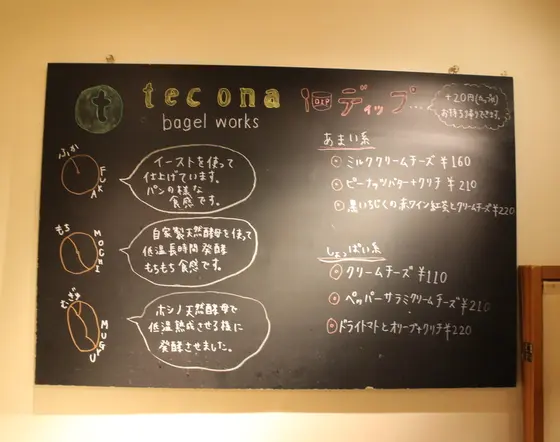 t
tecona
bagel works
DIP
ディップ...
+20円(カップ代)
お持ち帰りできます。
ふか
FUKA
イーストを使って
仕上げています。
パンの様な
食感です。
もち
MOCHI
自家製天然酵母を使って
低温長時間発酵
もちもち食感です。
むぎゅ
MUGYU
ホシノ天然酵母で
低温熟成させる様に
発酵させました。
あまい系
ミルククリームチーズ ¥160
ピーナッツバター+クリチ ¥210
黒いちじくの赤ワイン紅茶とクリームチーズ ¥220
しょっぱい系
クリームチーズ ¥110
ペッパーサラミクリームチーズ ¥210
ドライトマトとオリーブ+クリチ ¥220